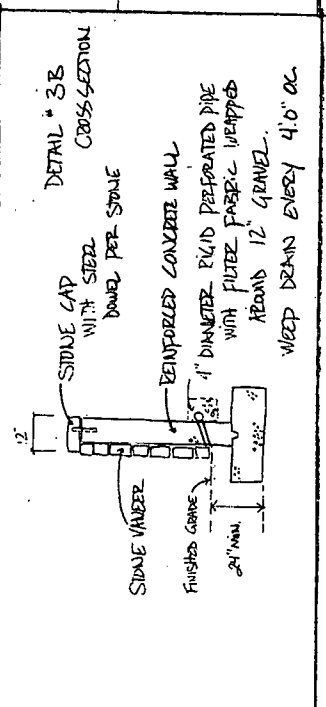 DETAIL # 3B
CROSS SECTION
STONE CAP
WITH STEEL
DOWEL PER STONE
12"
REINFORCED CONCRETE WALL
STONE VANEER
4" DIAMETER RIGID PERFORATED PIPE
WITH FILTER FABRIC WRAPPED
AROUND 12" GRAVEL.
WEEP DRAIN EVERY 4'.0" OC.
FINISHED GRADE
24" MIN.